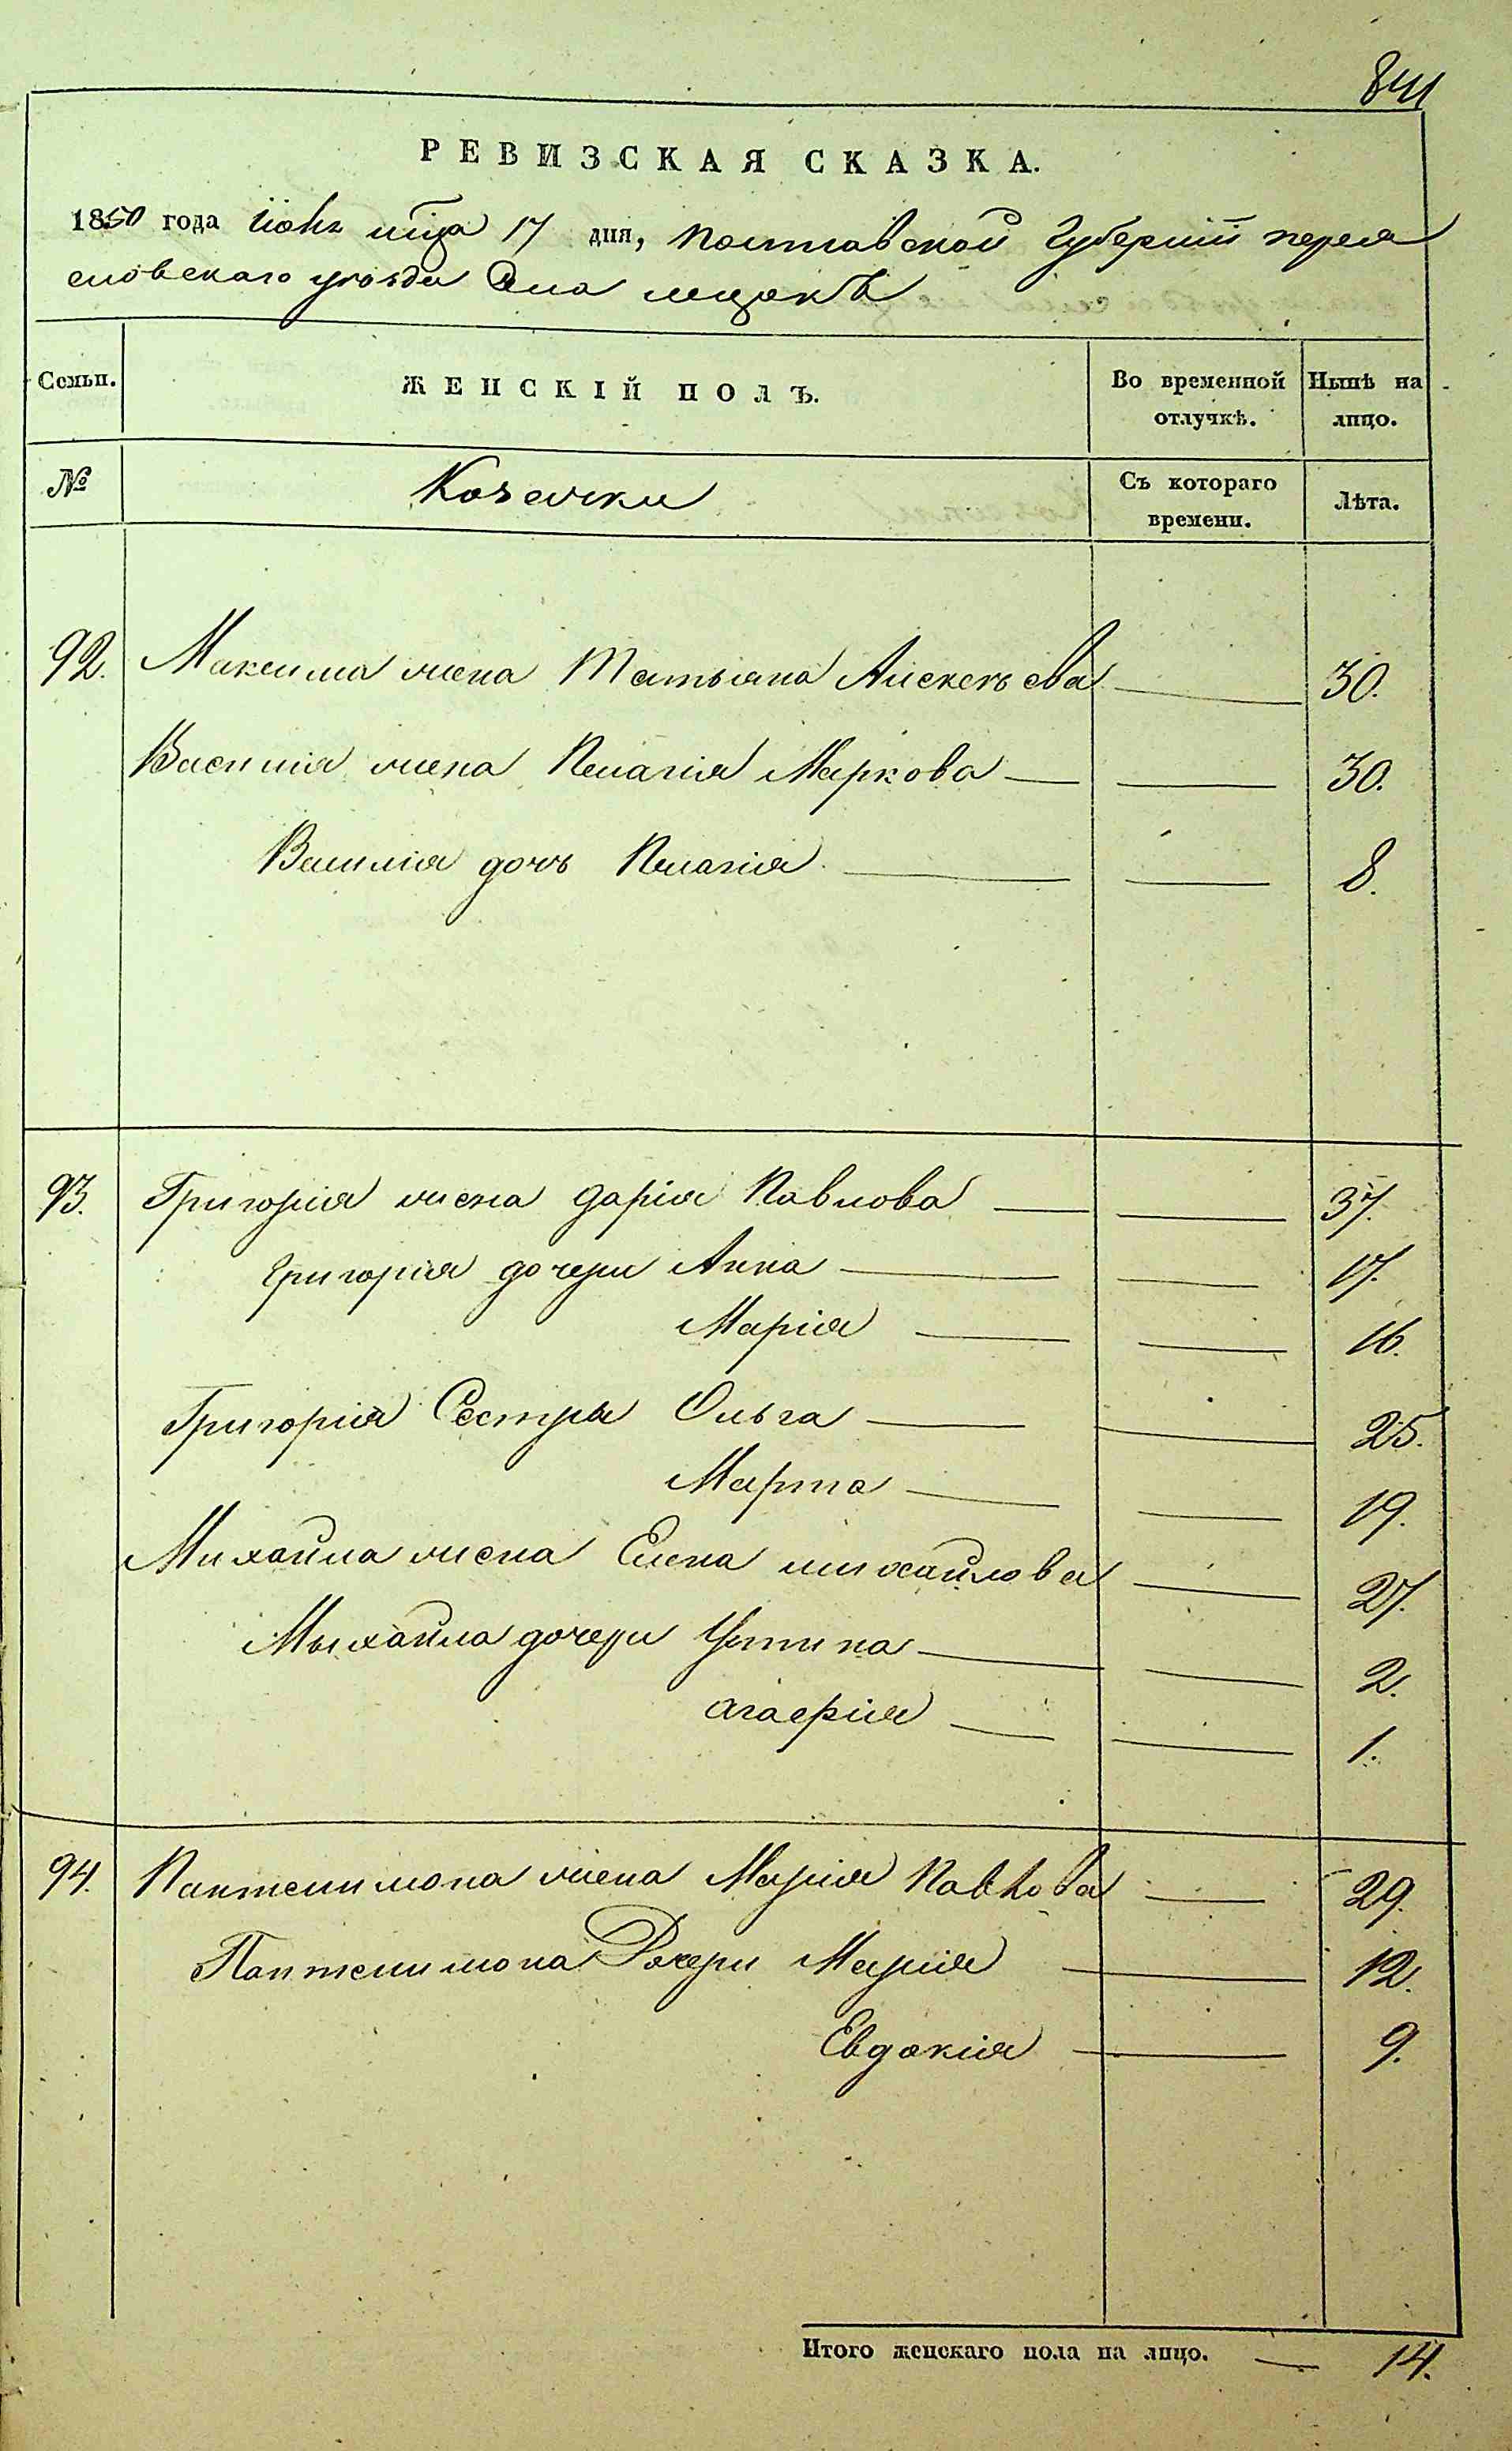 841
РЕВИЗСКАЯ СКАЗКА.
1850 года Июня мца 17 дня, Полтавской Губернии перея
словскаго уезда Села
Семьи. ЖЕНСКІЙ ПОЛЪ. Во временной отлучкѣ. Нынѣ на лицо.
№ Козачки Съ котораго времени. Лѣта.
92. Максима жена Татьяна Алексеева 30.
Василия жена Пелагия Маркова 30.
Василія дочь Пелагія 8.
93. Григория жена дарія Павлова 37.
Григория дочери Анна 17.
Марія 16.
Григория Сестры Ольга 25.
Марта 19.
Михайла жена Елена михайлова 27.
Мыхайла дочери Устина 2.
агафія 1.
94. Пантелимона жена Марія Павлова 29.
Пантелимона Дочери Марія 12.
Евдокия 9.
Итого женскаго пола на лицо. 14.